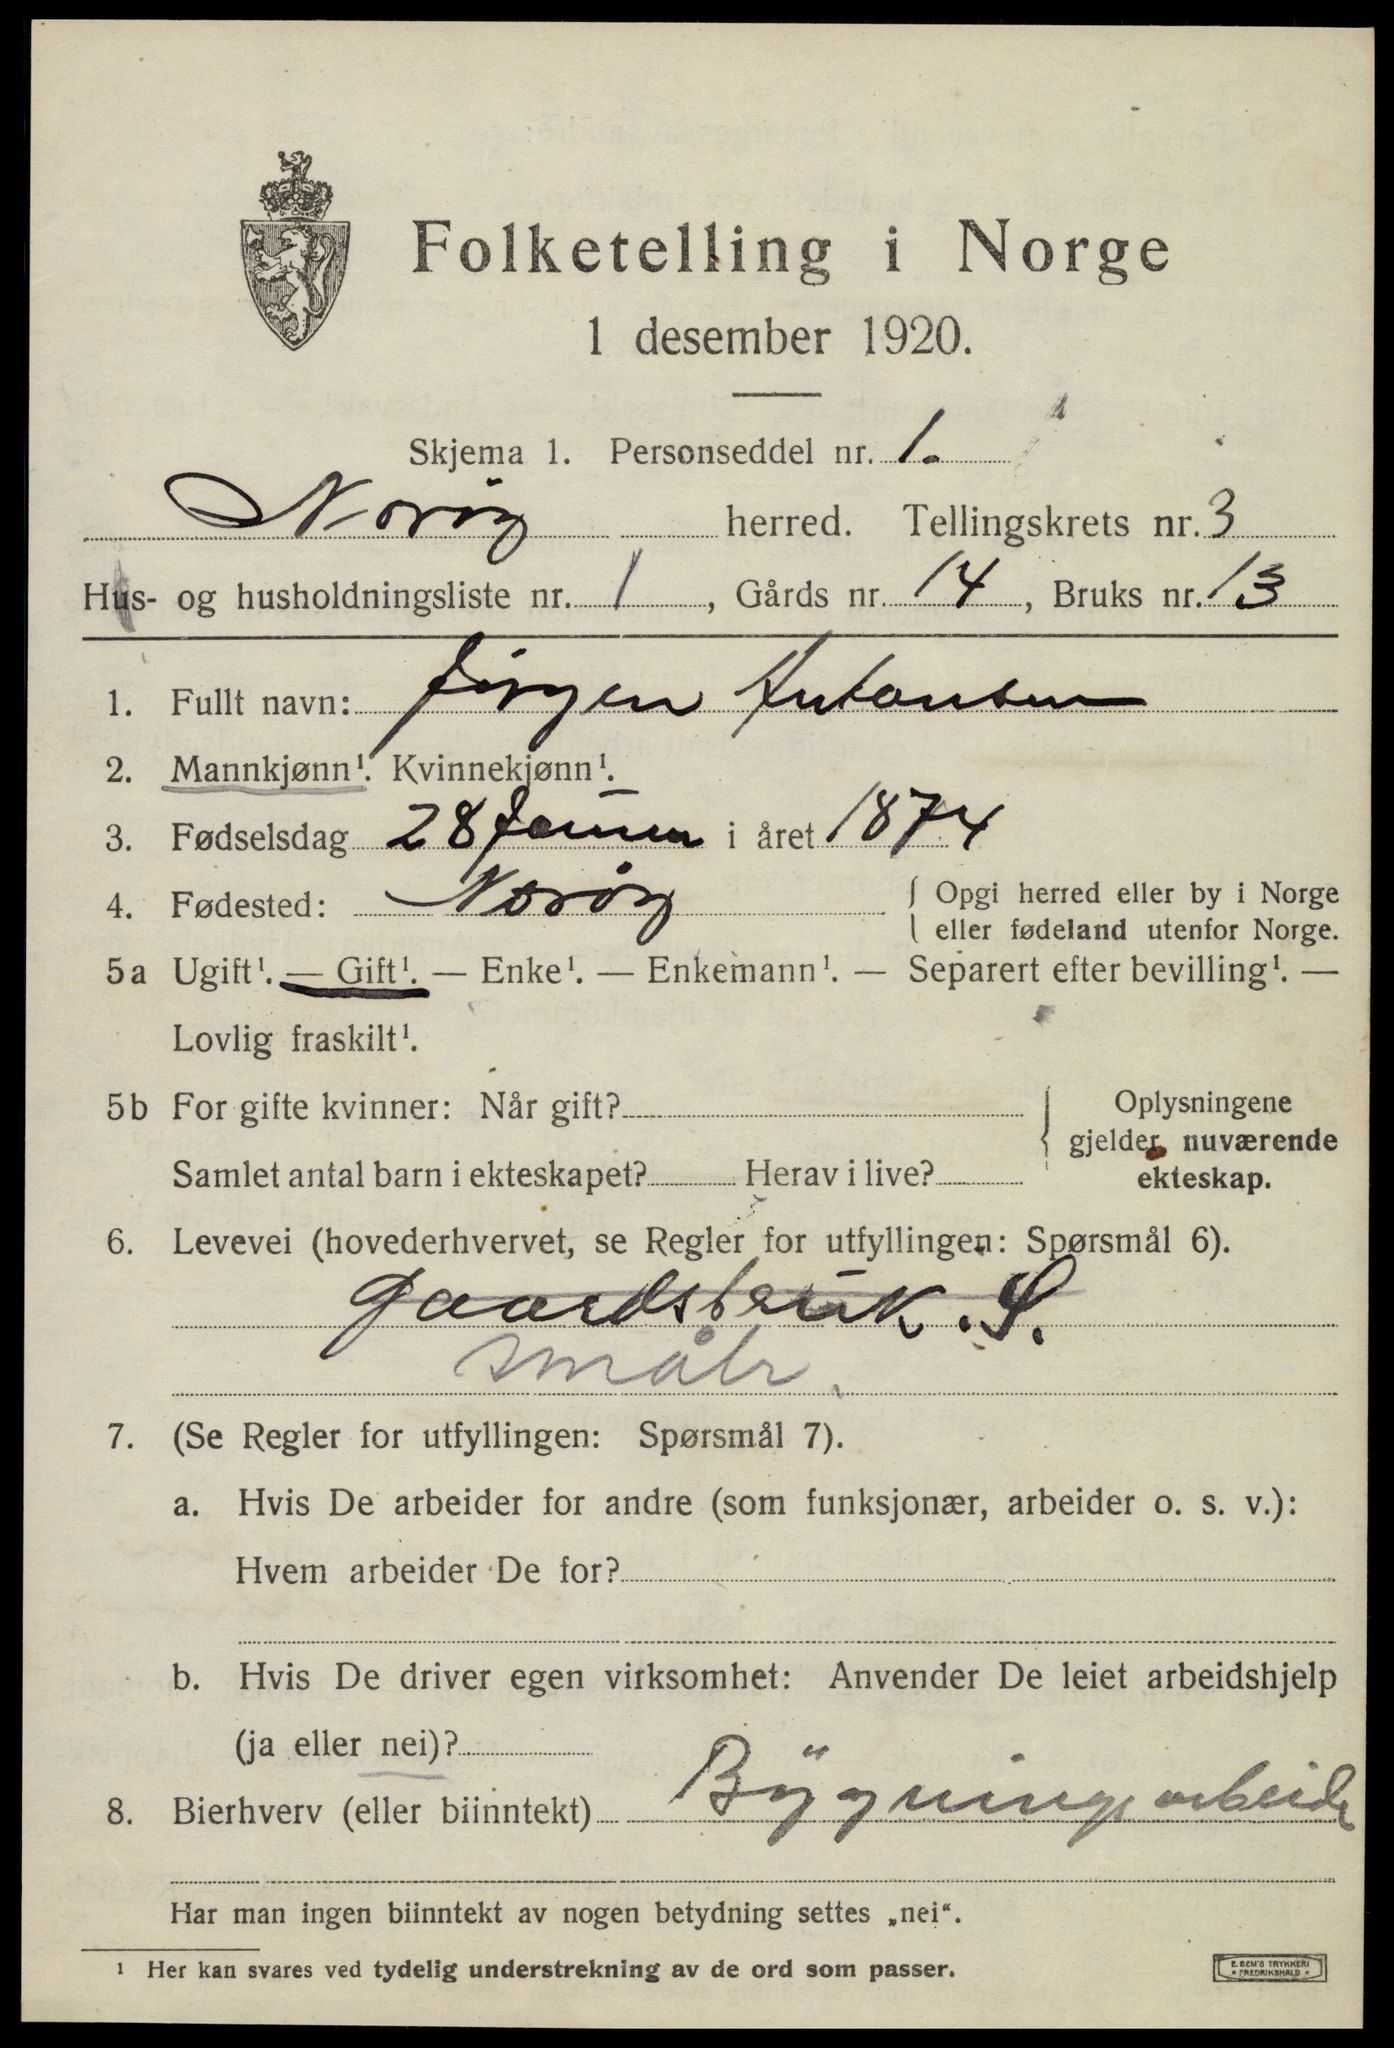 Folketelling i Norge
1 desember 1920.
Skjema 1. Personseddel nr. 1.
Norøy herred. Tellingskrets nr. 3
Hus- og husholdningsliste nr. 1, Gårds nr. 14, Bruks nr. 13
1. Fullt navn: Jørgen Antonsen
2. Mannkjønn¹. Kvinnekjønn¹.
3. Fødselsdag 28 Januar i året 1874
4. Fødested: Norøy { Opgi herred eller by i Norge
eller fødeland utenfor Norge.
5a Ugift¹. — Gift¹. — Enke¹. — Enkemann¹. — Separert efter bevilling¹. —
Lovlig fraskilt¹.
5b For gifte kvinner: Når gift? } Oplysningene
gjelder nuværende
Samlet antal barn i ekteskapet? Herav i live? ekteskap.
6. Levevei (hovederhvervet, se Regler for utfyllingen: Spørsmål 6).
Gaardsbruk. S.
småbr.
7. (Se Regler for utfyllingen: Spørsmål 7).
a. Hvis De arbeider for andre (som funksjonær, arbeider o. s. v.):
Hvem arbeider De for?
b. Hvis De driver egen virksomhet: Anvender De leiet arbeidshjelp
(ja eller nei)?
8. Bierhverv (eller biinntekt) Bygningsarbeide
Har man ingen biinntekt av nogen betydning settes „nei“.
¹ Her kan svares ved tydelig understrekning av de ord som passer.
E. SEM'S TRYKKERI
• FREDRIKSHALD •